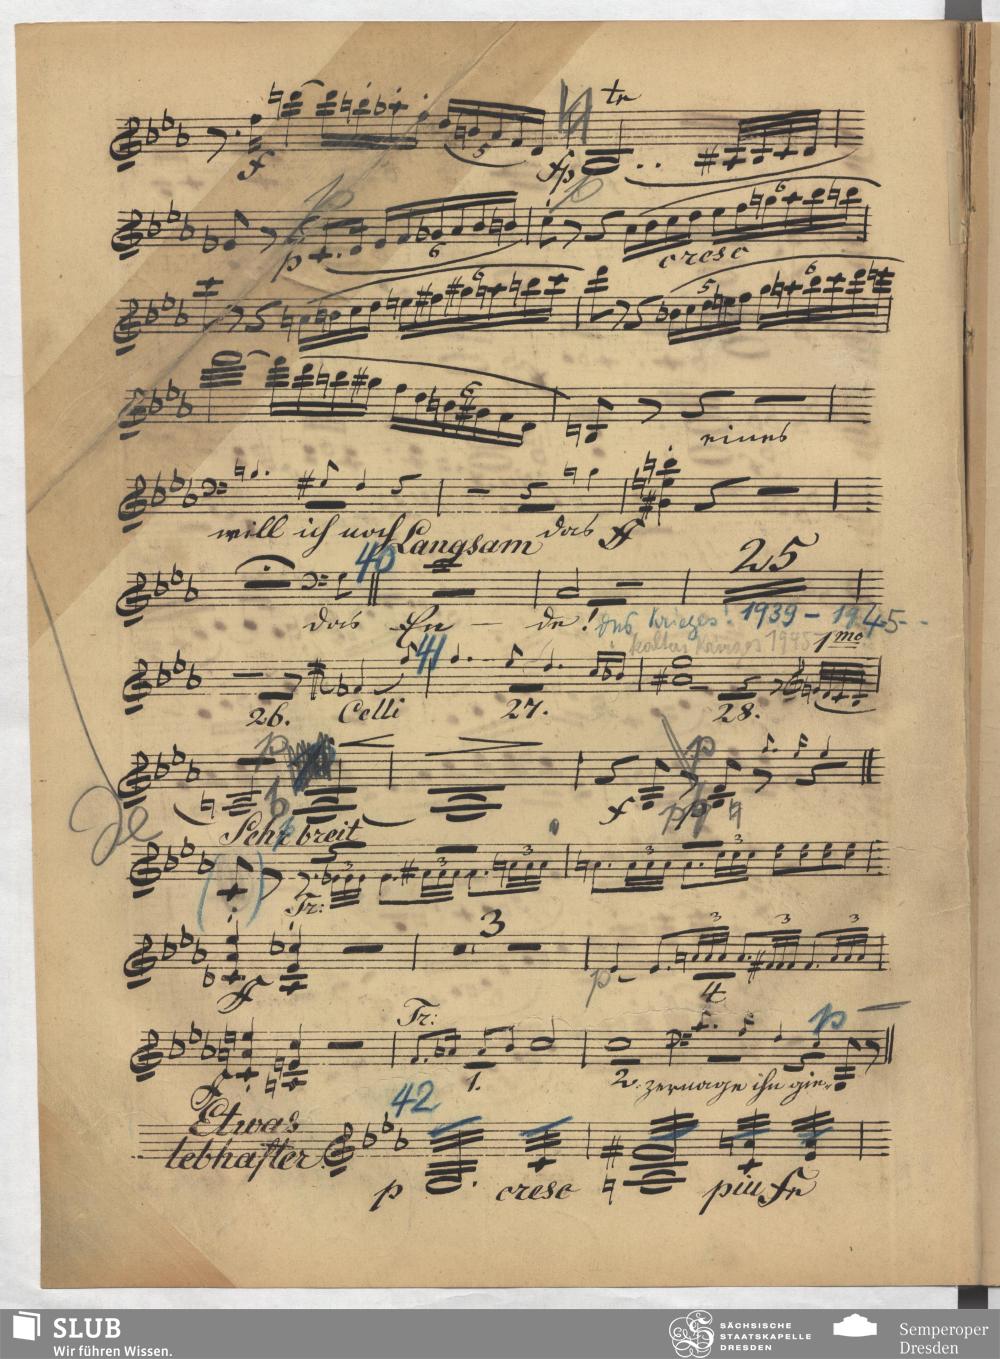 tr
5
f
fp
p
p
p
6
6
cresc
6
5
6
6
eines
will ich noch
Langsam
das
ff
40
25
das En - de!
des Krieges! 1939 - 1945 -
kalten Krieges 1945
1mo
41
26.
Celli
27.
28.
p
p
f
pp
Sehr breit
3
3
3
3
3
Tr:
3
ff
p
4
3
3
3
Tr:
p
ff
1.
2.
zernage ihn
42
Etwas
lebhafter
p
cresc
più
SLUB
Wir führen Wissen.
SÄCHSISCHE
STAATSKAPELLE
DRESDEN
Semperoper
Dresden